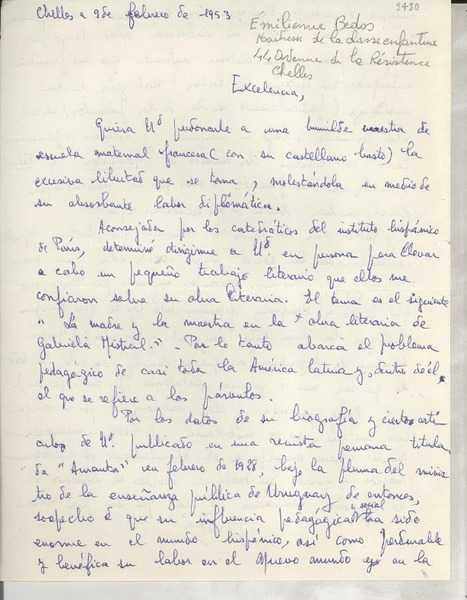 9480
Chelles a 9 de febrero de 1953
Émilienne Bedos
Maîtresse de la classe enfantine
44 Avenue de la Résistence
Chelles
Excelencia,
Quiera Ud perdonarle a una humilde maestra de
escuela maternal francesa (con su castellano basto) la
excesiva libertad que se toma, molestándola en medio de
su absorbante labor diplómática.
Aconsejada por los catedráticos del instituto hispánico
de París, determiné dirigirme a Ud. en persona para llevar
a cabo un pequeño trabajo literario que ellos me
confiaron sobre su obra literaria. El tema es el siguiente
" La madre y la maestra en la obra literaria de
Gabriela Mistral." Por lo tanto abarca el problema
pedagógico de casi toda la América latina y, dentro de él,
el que se refiere a los párvulos.
Por los datos de su biografía y ciertos artí
culos de Ud. publicado en una revista peruana titula
da "Amauta" en febrero de 1928, bajo la pluma del minis
tro de la enseñanza pública de Uruguay de entonces,
sospecho que su influencia pedagógica y social ha sido
enorme en el mundo hispánico, así como perdurable
y benéfica su labor en el nuevo mundo en la